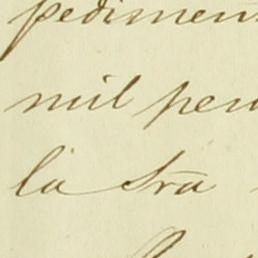 pedimen
mil pe
la Sra